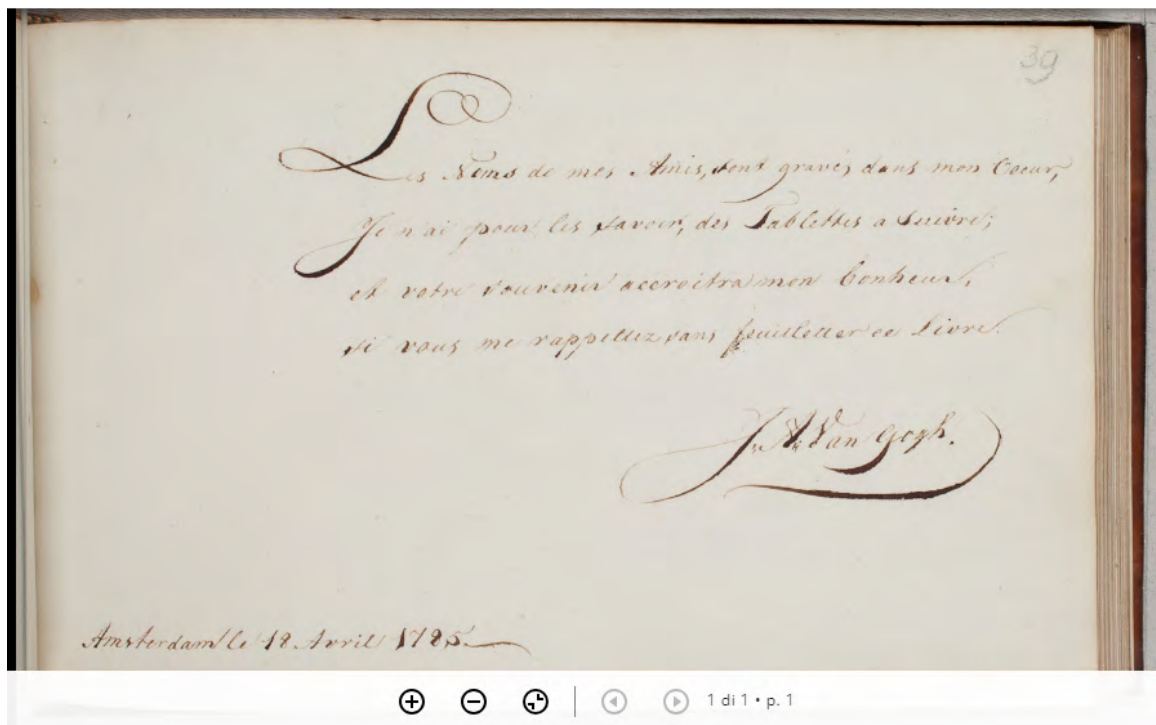 39
Les Noms de mes Amis, sont gravés dans mon Coeur,
Je n'ai pour les savoir, des Tablettes a Suivre;
et votre souvenir accroitra mon bonheur,
si vous me rappellez sans feuilletter ce Livre.
J. A. Van Gogh.
Amsterdam le 18 Avril 1785.
1 di 1 • p. 1